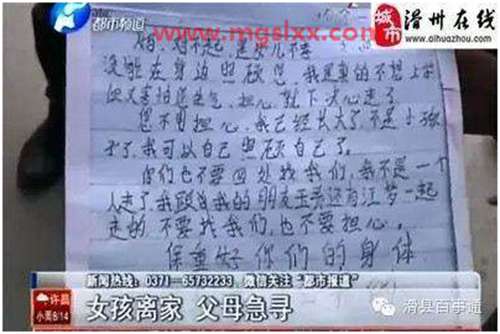 都市频道
www.mgslxx.com
城市
滑州在线
www.aihuazhou.com
妈 对不起 是女儿不孝
没能在身边照顾您 我是真的不想上学
但又害怕您生气 担心 就下决心走了
您不用担心 我已经长大了 不是小孩
子了 我可以自己照顾自己了
你们也不要四处找我们 我不是一个
人走了我跟着我的朋友王 还有江梦一起
走的 不要找我们 也不要担心
保重好你们的身体
新闻热线：0371-65732233 微信关注“都市报道”
许昌
小雨8/14
女孩离家 父母急寻
滑县百事通